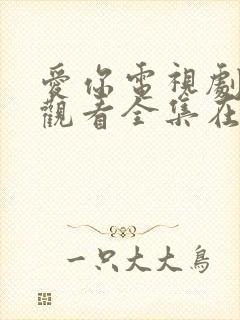 愛你電視劇
觀看全集在
一只大大鳥